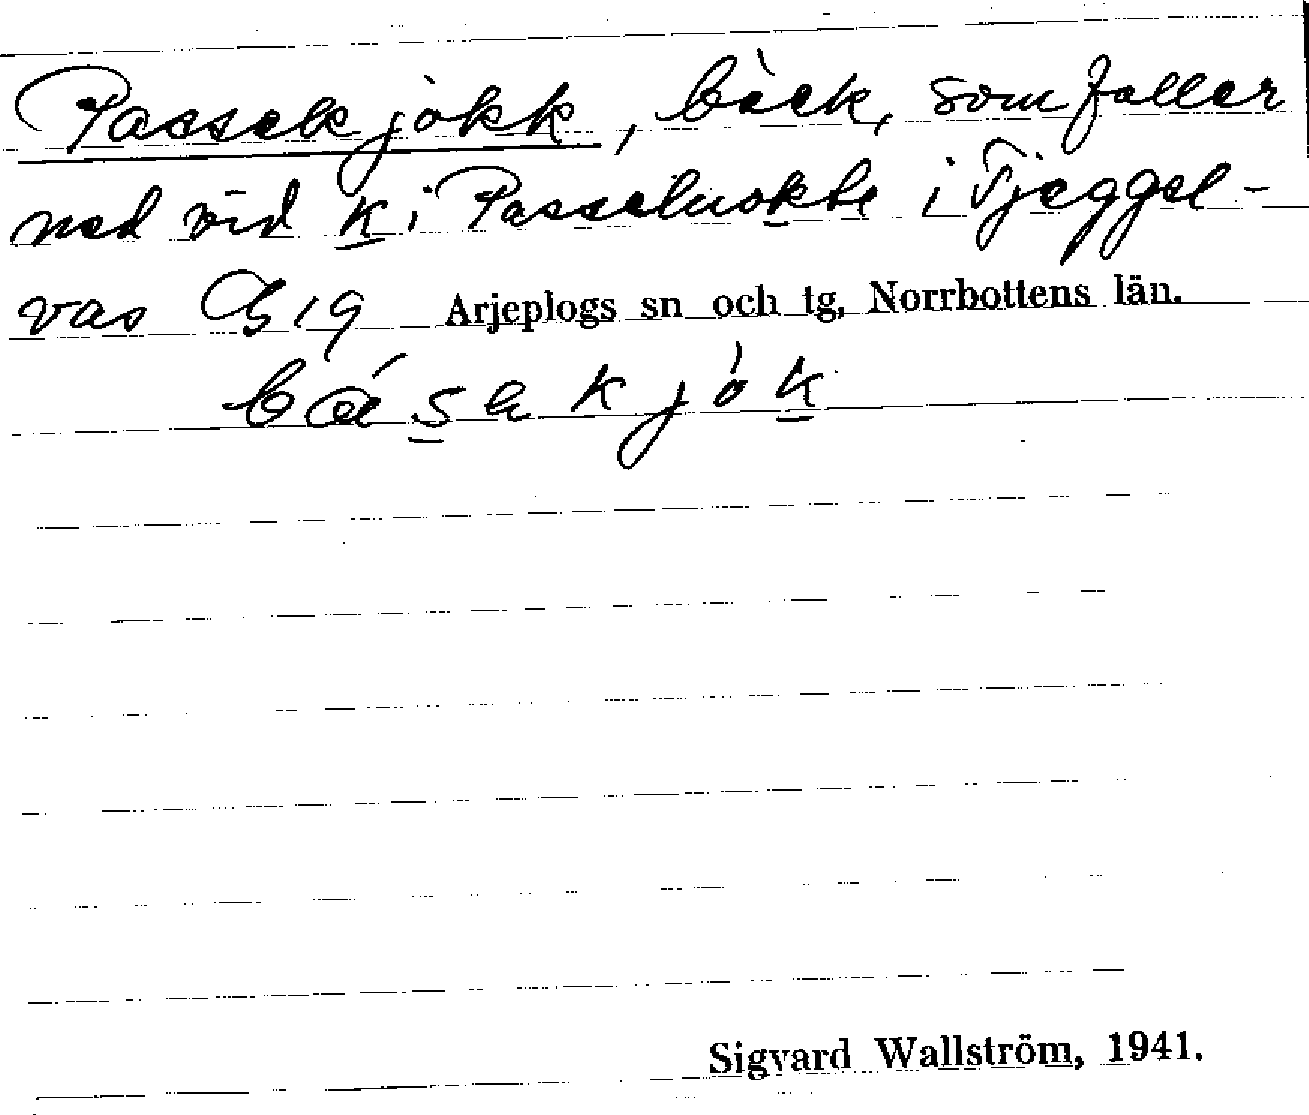 Passekjåkk, bäck, som faller
ned vid k i Passeluokte i Tjeggel-
vas G 19 Arjeplogs sn och tg, Norrbottens län.
básakjåk
Sigvard Wallström, 1941.